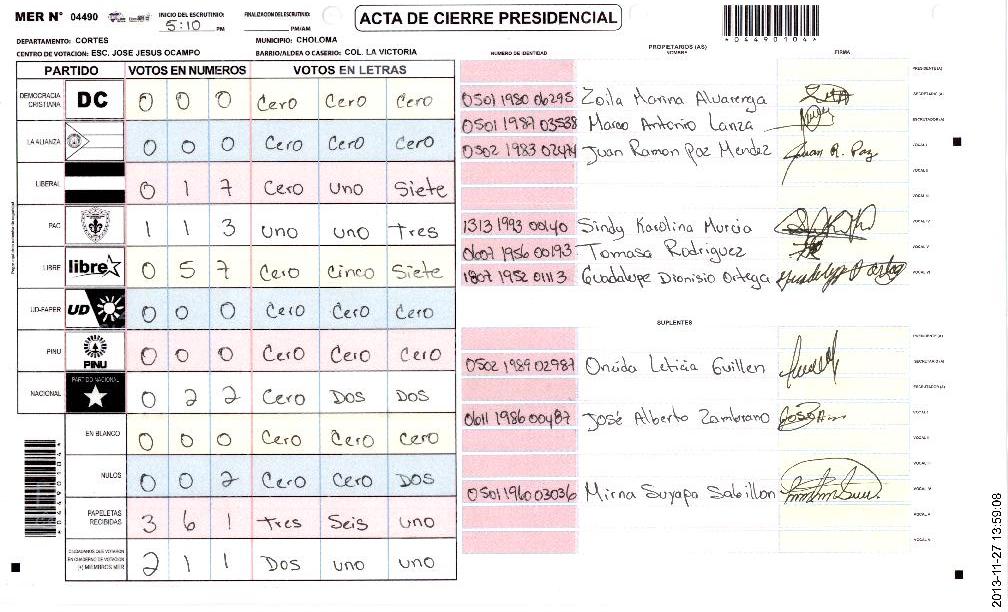 MER N° 04490
INICIO DEL ESCRUTINIO: 5:10 PM
FINALIZACION DEL ESCRUTINIO: PM/AM
ACTA DE CIERRE PRESIDENCIAL
*04490104*
DEPARTAMENTO: CORTES
MUNICIPIO: CHOLOMA
CENTRO DE VOTACION: ESC. JOSE JESUS OCAMPO
BARRIO/ALDEA O CASERIO: COL. LA VICTORIA
PARTIDO VOTOS EN NUMEROS VOTOS EN LETRAS
DEMOCRACIA CRISTIANA DC 0 0 0 Cero Cero Cero
LA ALIANZA 0 0 0 Cero Cero Cero
LIBERAL 0 1 7 Cero uno Siete
PAC 1 1 3 uno uno tres
LIBRE libre 0 5 7 Cero Cinco Siete
UD-FAPER UD 0 0 0 Cero Cero Cero
PINU PINU 0 0 0 Cero Cero Cero
NACIONAL PARTIDO NACIONAL 0 2 2 Cero DOS DOS
EN BLANCO 0 0 0 Cero Cero cero
NULOS 0 0 2 Cero Cero DOS
PAPELETAS RECIBIDAS 3 6 1 tres Seis uno
CIUDADANOS QUE VOTARON EN CUADERNO DE VOTACION (+) MIEMBROS MER 2 1 1 DOS uno uno
*04490104*
PROPIETARIOS (AS)
NUMERO DE IDENTIDAD NOMBRE FIRMA
PRESIDENTE(A)
0501 1980 06295 Zoila Marina Alvarenga SECRETARIO(A)
0501 1987 03538 Marco Antonio Lanza ESCRUTADOR(A)
0502 1983 02474 Juan Ramon Paz Mendez Juan R. Paz VOCAL I
VOCAL II
VOCAL III
1313 1993 00140 Sindy Karolina Murcia VOCAL IV
0607 1956 00193 Tomasa Rodriguez VOCAL V
1807 1952 01113 Guadalupe Dionisio Ortega VOCAL VI
SUPLENTES
PRESIDENTE(A)
0502 1989 02987 Oneida Leticia Guillen SECRETARIO(A)
ESCRUTADOR(A)
0611 1986 00487 José Alberto Zambrano VOCAL I
VOCAL II
VOCAL III
0501 1960 03036 Mirna Suyapa Sabillon VOCAL IV
VOCAL V
VOCAL VI
2013-11-27 13:59:08